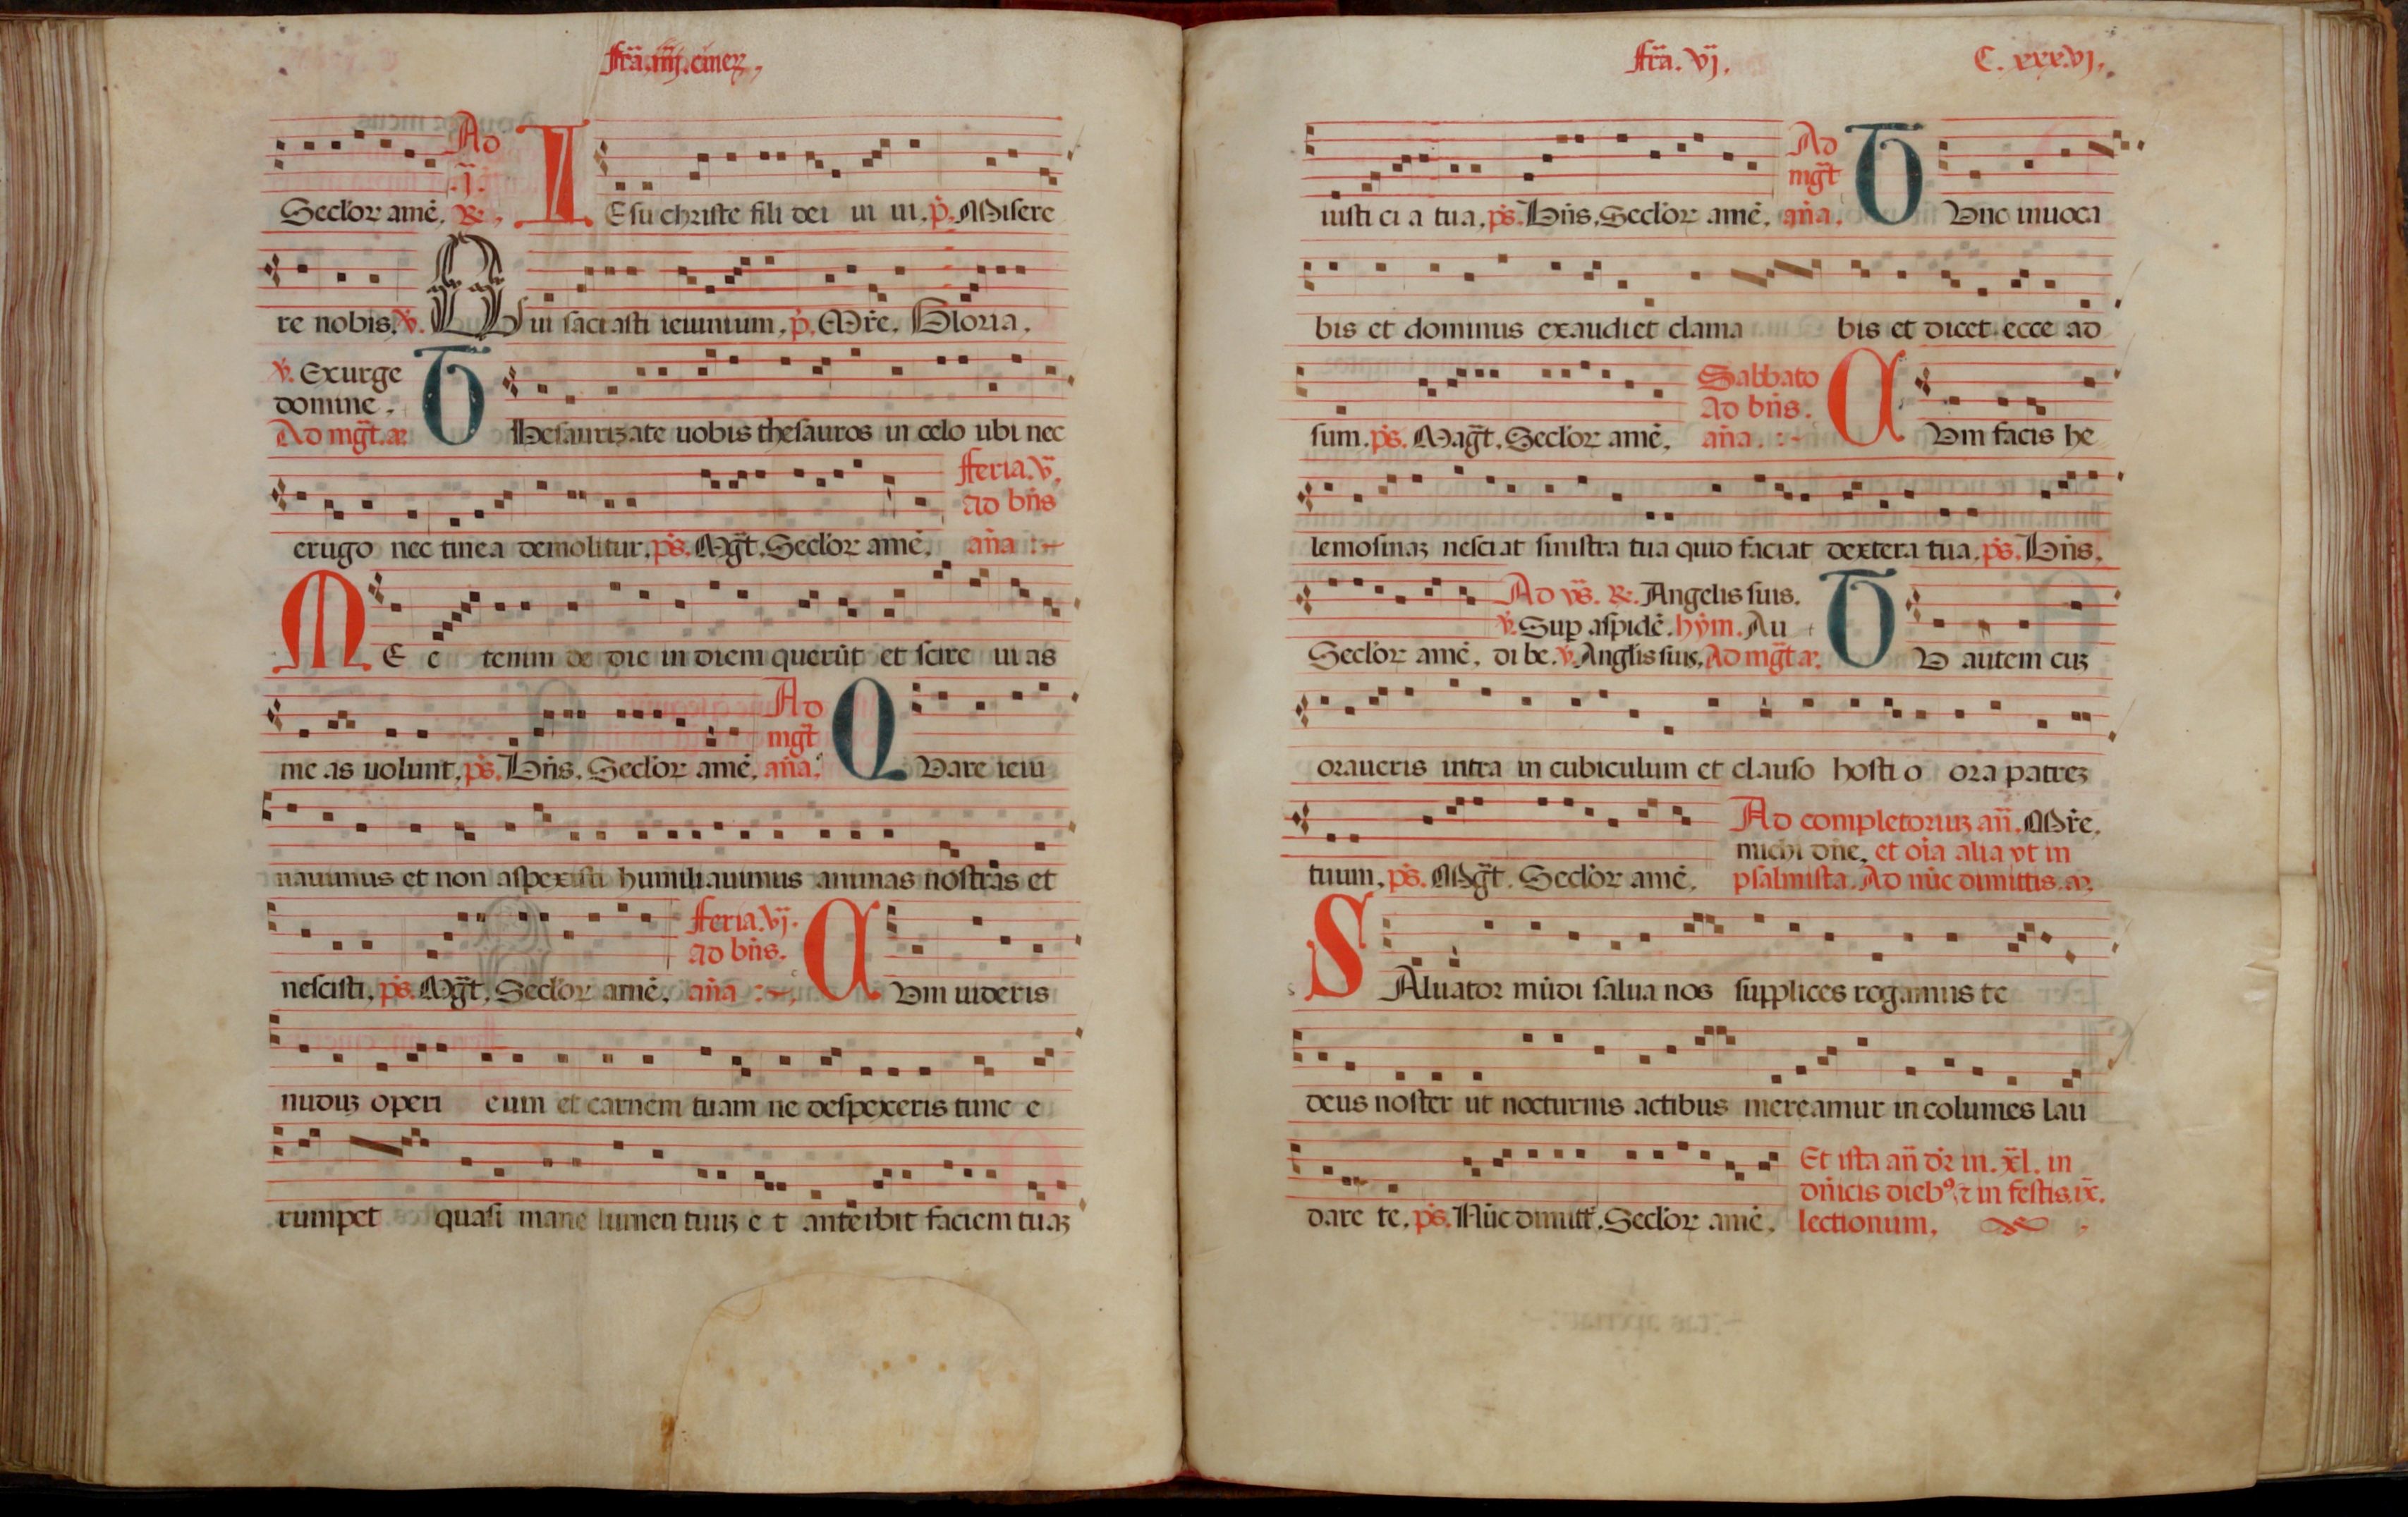 fr̄a.iiij.ciner,
Seclor amē. Ad .j. R.
IEsu christe fili dei ui ui. p̄. Misere
re nobis. v. Qui faci asti ieiunium. p̄. Mr̄e. Gloria.
v. Exurge
domine.
Ad mḡt. a.
Thesaurizate uobis thesauros in celo ubi nec
erugo nec tinea demolitur. ps. Mḡt. Seclor amē.
fferia. v.
ad bn̄s
an̄a :~
ME e tenim de die in diem querūt et scire uias
me as uolunt. ps. Bn̄s. Seclor amē.
Ad
mḡt
an̄a.
QVare ieiu
nauimus et non aspexisti humiliauimus animas nostras et
nescisti. ps. Mḡt. Seclor amē.
fferia. vj.
ad bn̄s.
an̄a :~.
CVm uideris
nuduz operi eum et carnem tuam ne despexeris tunc e
rumpet quasi mane lumen tuuz e t anteibit faciem tuaz
fr̄a. vj.
C. xxxvj.
iusti ci a tua. ps. Bn̄s. Seclor amē.
Ad
mḡt
an̄a.
TVnc inuoca
bis et dominus exaudiet clama bis et dicet ecce ad
sum. ps. Maḡt. Seclor amē.
Sabbato
ad bn̄s.
an̄a. :~
CVm facis he
lemosinaz nesciat sinistra tua quid faciat dextera tua. ps. Bn̄s.
Ad vs̄. R. Angelis suis.
v. Sup aspidē. hym. Au
Seclor amē. di be. v. Anglis suis. Ad mḡt a.
TV autem cuz
oraueris intra in cubiculum et clauso hosti o ora patrez
tuum. ps. Mḡt. Seclor amē.
Ad completoruz an̄. Mr̄e.
michi dn̄e. et oīa alia vt in
psalmista. Ad nūc dimittis. a.
SAluator mūdi salua nos supplices rogamus te
deus noster ut nocturnis actibus mereamur in columes lau
dare te. ps. Nūc dimitt. Seclor amē.
Et ista an̄ dr̄ in. xl. in
dn̄icis dieb⁹ ⁊ in festis. ix.
lectionum.